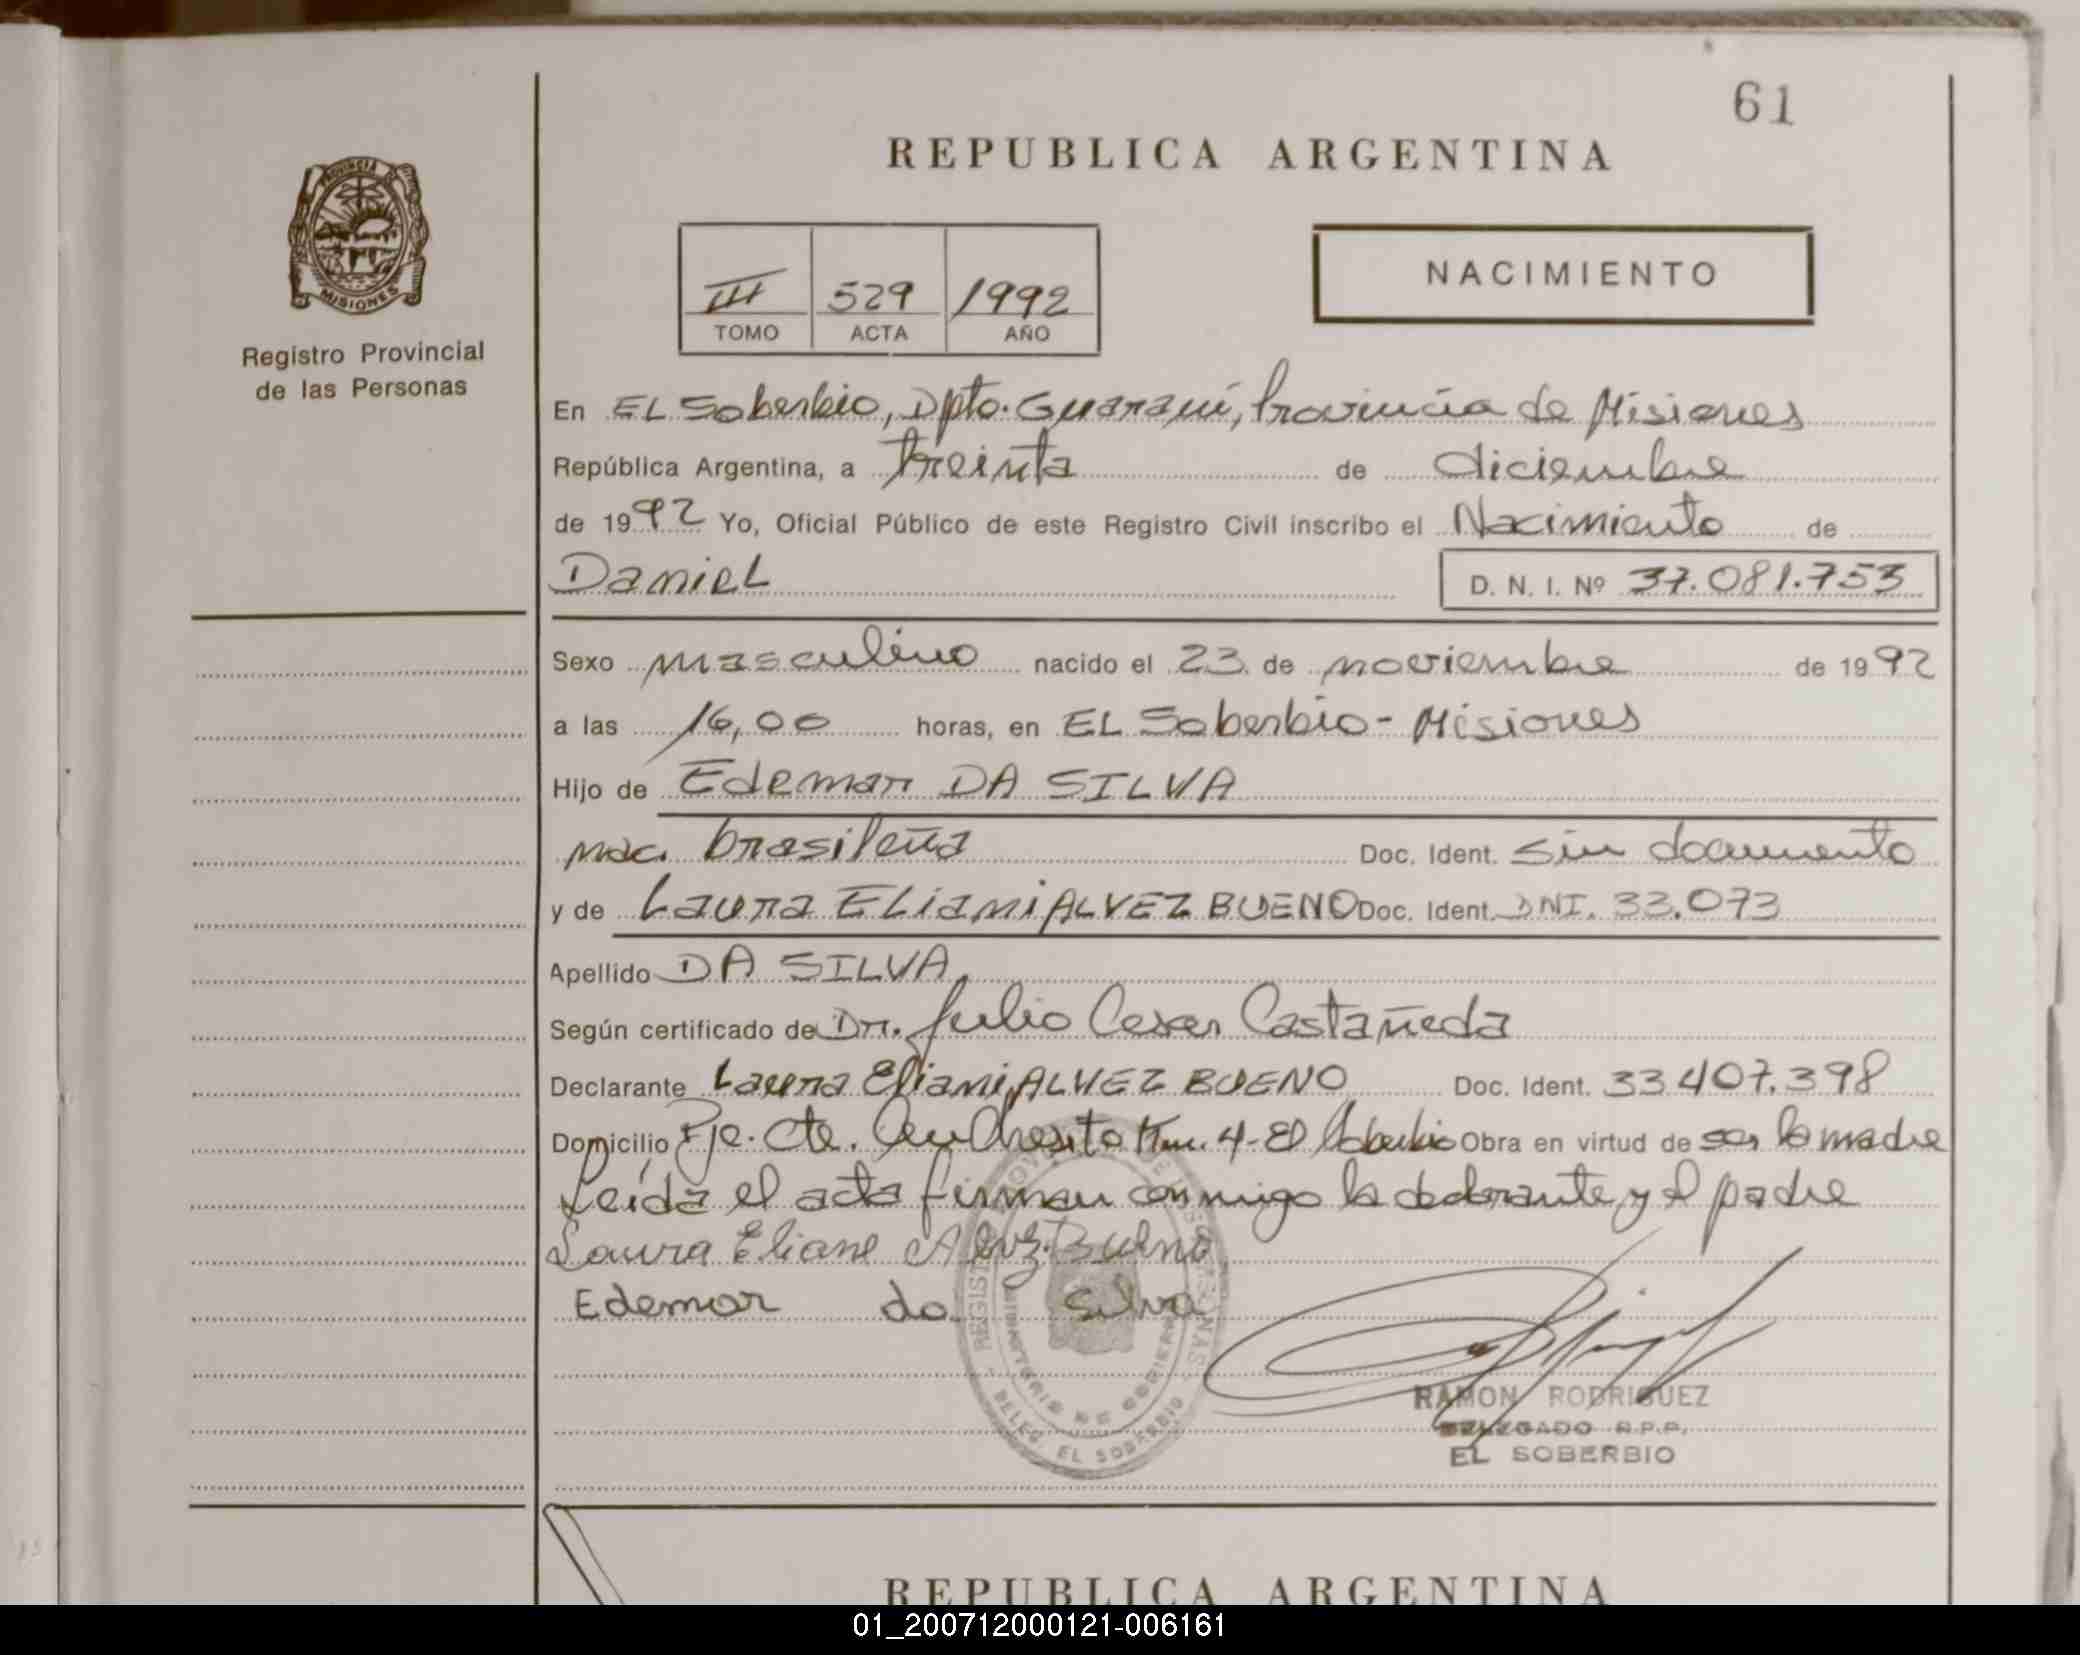 61
REPUBLICA ARGENTINA
PROVINCIA DE
MISIONES
Registro Provincial
de las Personas
III 529 1992
TOMO ACTA AÑO
NACIMIENTO
En EL Soberbio, Dpto. Guaraní, Provincia de Misiones
República Argentina, a treinta de diciembre
de 1992 Yo, Oficial Público de este Registro Civil inscribo el Nacimiento de
Daniel D. N. I. Nº 37.081.753
Sexo masculino nacido el 23 de noviembre de 1992
a las 16,00 horas, en EL Soberbio - Misiones
Hijo de Edemar DA SILVA
nac. brasileña Doc. Ident. Sin documento
y de Laura Eliani ALVEZ BUENO Doc. Ident. DNI. 33.073
Apellido DA SILVA
Según certificado de Dr. Julio Cesar Castañeda
Declarante Laura Eliani ALVEZ BUENO Doc. Ident. 33 407.398
Domicilio Pje. Cte. Andresito Km. 4 - El Soberbio Obra en virtud de ser la madre
Leída el acta firman conmigo la declarante y el padre
Laura Eliane Alvz. Bueno
Edemar da Silva
MINISTERIO DE GOBIERNO
DELEG. EL SOBERBIO
RAMON RODRIGUEZ
DELEGADO R.P.P.
EL SOBERBIO
REPUBLICA ARGENTINA
01_200712000121-006161